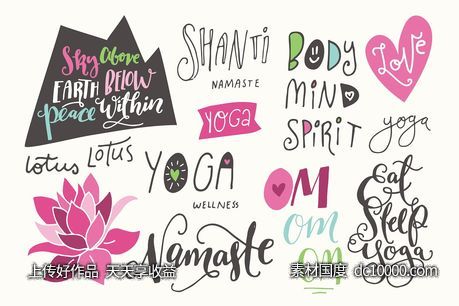 Sky above
EARTH BELOW
Peace Within
SHANTI
NAMASTE
YOGA
BODY
MIND
SPIRIT
Love
yoga
lotus
LOTUS
YOGA
WELLNESS
OM
om
om
Eat
Sleep
Yoga
Namaste
上传好作品 天天享收益
素材国度 dc10000.com